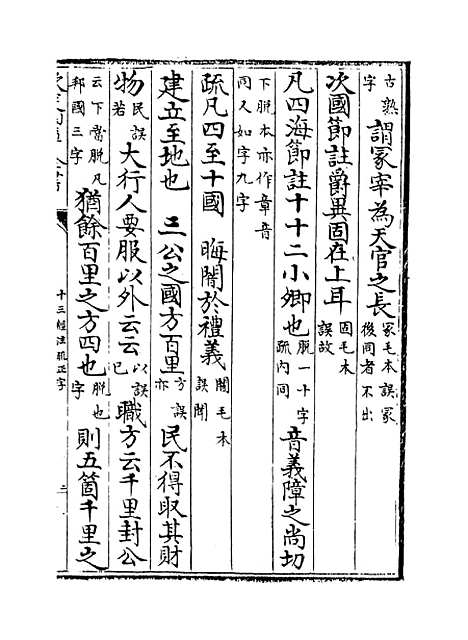 古熟字 謂冢宰為天官之長 冢毛本誤冡後同者不出
次國節註爵異固在上耳 固毛本誤故
凡四海節註十十二小卿也 脫一十字疏内同 音義障之尚切
下脫本亦作章音同又如字九字
疏凡四至十國 晦闇於禮義 闇毛本誤闻
建立至地也 三公之國方百里 方誤亦 民不得取其財
物 民誤若 大行人要服以外云云 以誤已 職方云千里封公
云下當脫凡邦國三字 猶餘百里之方四也 脫也字 則五箇千里之
十三經注疏正字